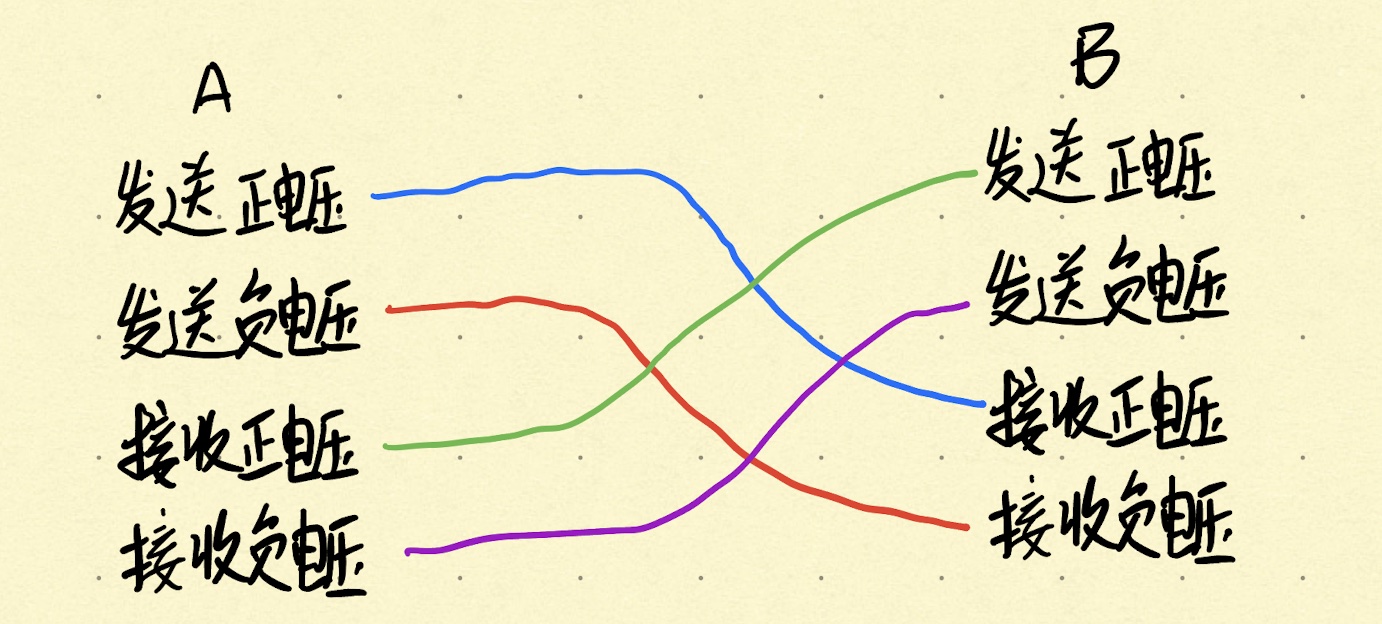 A
发送正电压
发送负电压
接收正电压
接收负电压
B
发送正电压
发送负电压
接收正电压
接收负电压